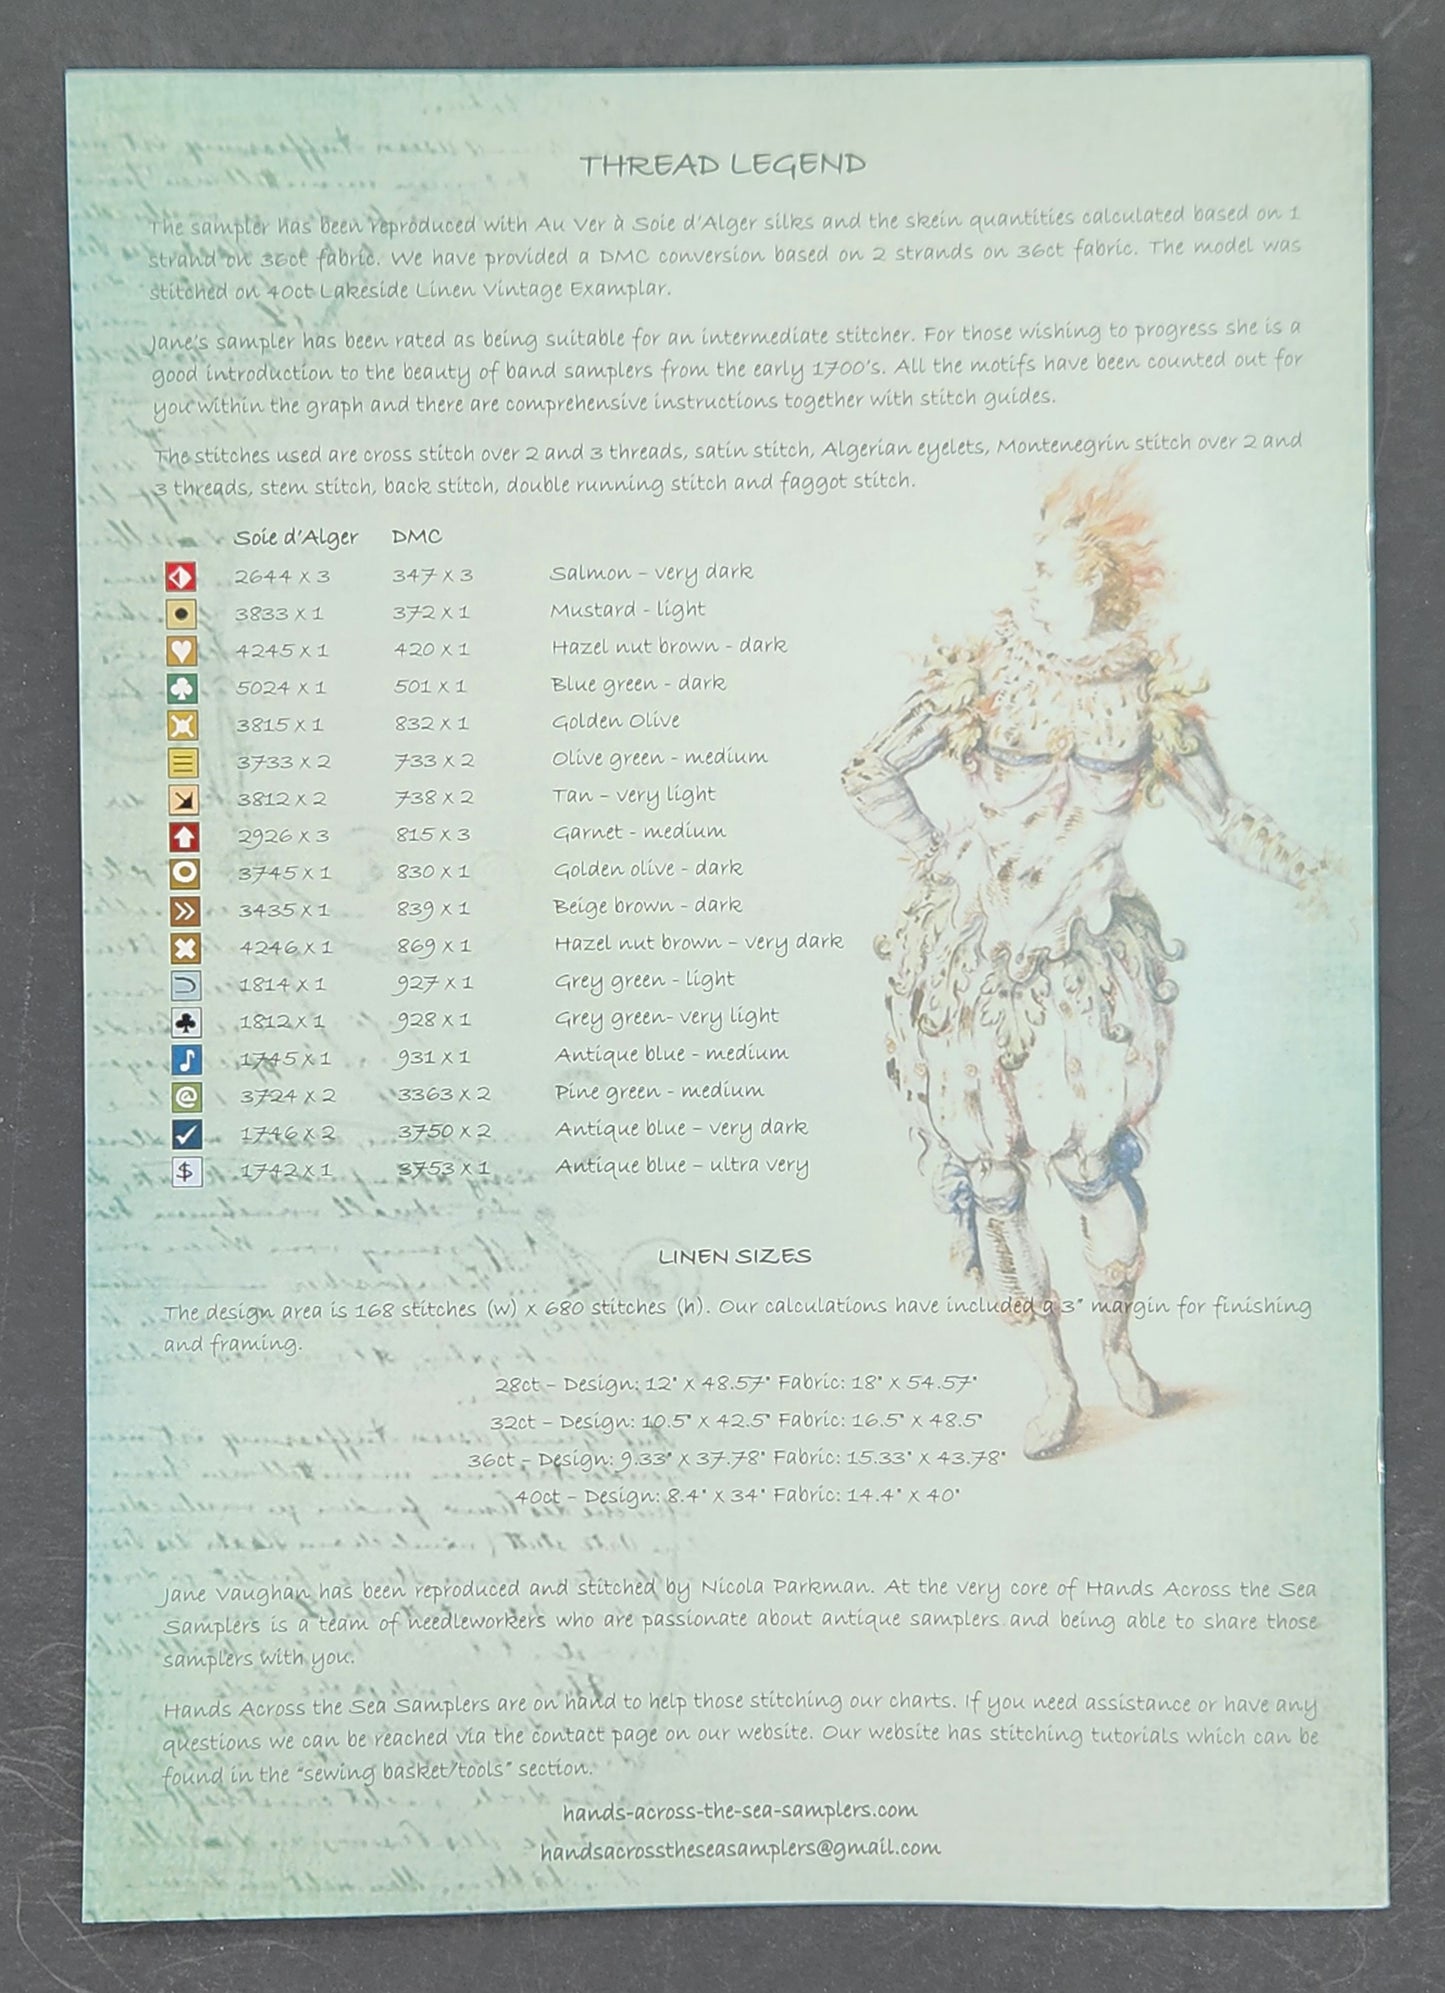 THREAD LEGEND
The sampler has been reproduced with Au Ver à Soie d'Alger silks and the skein quantities calculated based on 1
strand on 36ct fabric. We have provided a DMC conversion based on 2 strands on 36ct fabric. The model was
stitched on 40ct Lakeside Linen Vintage Examplar.
Jane's sampler has been rated as being suitable for an intermediate stitcher. For those wishing to progress she is a
good introduction to the beauty of band samplers from the early 1700's. All the motifs have been counted out for
you within the graph and there are comprehensive instructions together with stitch guides.
The stitches used are cross stitch over 2 and 3 threads, satin stitch, Algerian eyelets, Montenegrin stitch over 2 and
3 threads, stem stitch, back stitch, double running stitch and faggot stitch.
Soie d'Alger DMC
2644 x 3 347 x 3 Salmon – very dark
3833 x 1 372 x 1 Mustard - light
4245 x 1 420 x 1 Hazel nut brown - dark
5024 x 1 501 x 1 Blue green - dark
3815 x 1 832 x 1 Golden Olive
3733 x 2 733 x 2 Olive green - medium
3812 x 2 738 x 2 Tan – very light
2926 x 3 815 x 3 Garnet - medium
3745 x 1 830 x 1 Golden olive - dark
3435 x 1 839 x 1 Beige brown - dark
4246 x 1 869 x 1 Hazel nut brown – very dark
1814 x 1 927 x 1 Grey green - light
1812 x 1 928 x 1 Grey green- very light
1745 x 1 931 x 1 Antique blue - medium
@ 3724 x 2 3363 x 2 Pine green - medium
1746 x 2 3750 x 2 Antique blue – very dark
$ 1742 x 1 3753 x 1 Antique blue – ultra very
LINEN SIZES
The design area is 168 stitches (w) x 680 stitches (h). Our calculations have included a 3" margin for finishing
and framing.
28ct – Design: 12" x 48.57" Fabric: 18" x 54.57"
32ct – Design: 10.5" x 42.5" Fabric: 16.5" x 48.5"
36ct – Design: 9.33" x 37.78" Fabric: 15.33" x 43.78"
40ct – Design: 8.4" x 34" Fabric: 14.4" x 40"
Jane Vaughan has been reproduced and stitched by Nicola Parkman. At the very core of Hands Across the Sea
Samplers is a team of needleworkers who are passionate about antique samplers and being able to share those
samplers with you.
Hands Across the Sea Samplers are on hand to help those stitching our charts. If you need assistance or have any
questions we can be reached via the contact page on our website. Our website has stitching tutorials which can be
found in the "sewing basket/tools" section.
hands-across-the-sea-samplers.com
handsacrosstheseasamplers@gmail.com